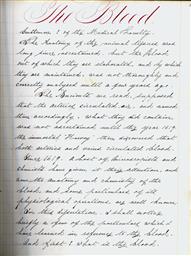 The Blood
Gentlemen of the Medical Faculty.
The Anatomy of the animal ligaments was
long since ascertained. but the blood
out of which they are elaborated, and by which
they are maintained, was not thoroughly and
correctly analyzed until a few years ago.
The Ancients we read, supposed
that the arteries circulated air, and named
them accordingly. What they did contain,
was not ascertained until the year 1619
the immortal Harvey then discovered that
both arteries and veins circulated blood.
Since 1619. a host of
chemists have given it their attention, and
now the anatomy and chemistry of the
blood, and some particulars of its
physiological operations are well known.
In this dissertation, I shall notice
briefly a few of the particulars which I
have learned in reference to the blood.
And first; What is the blood.